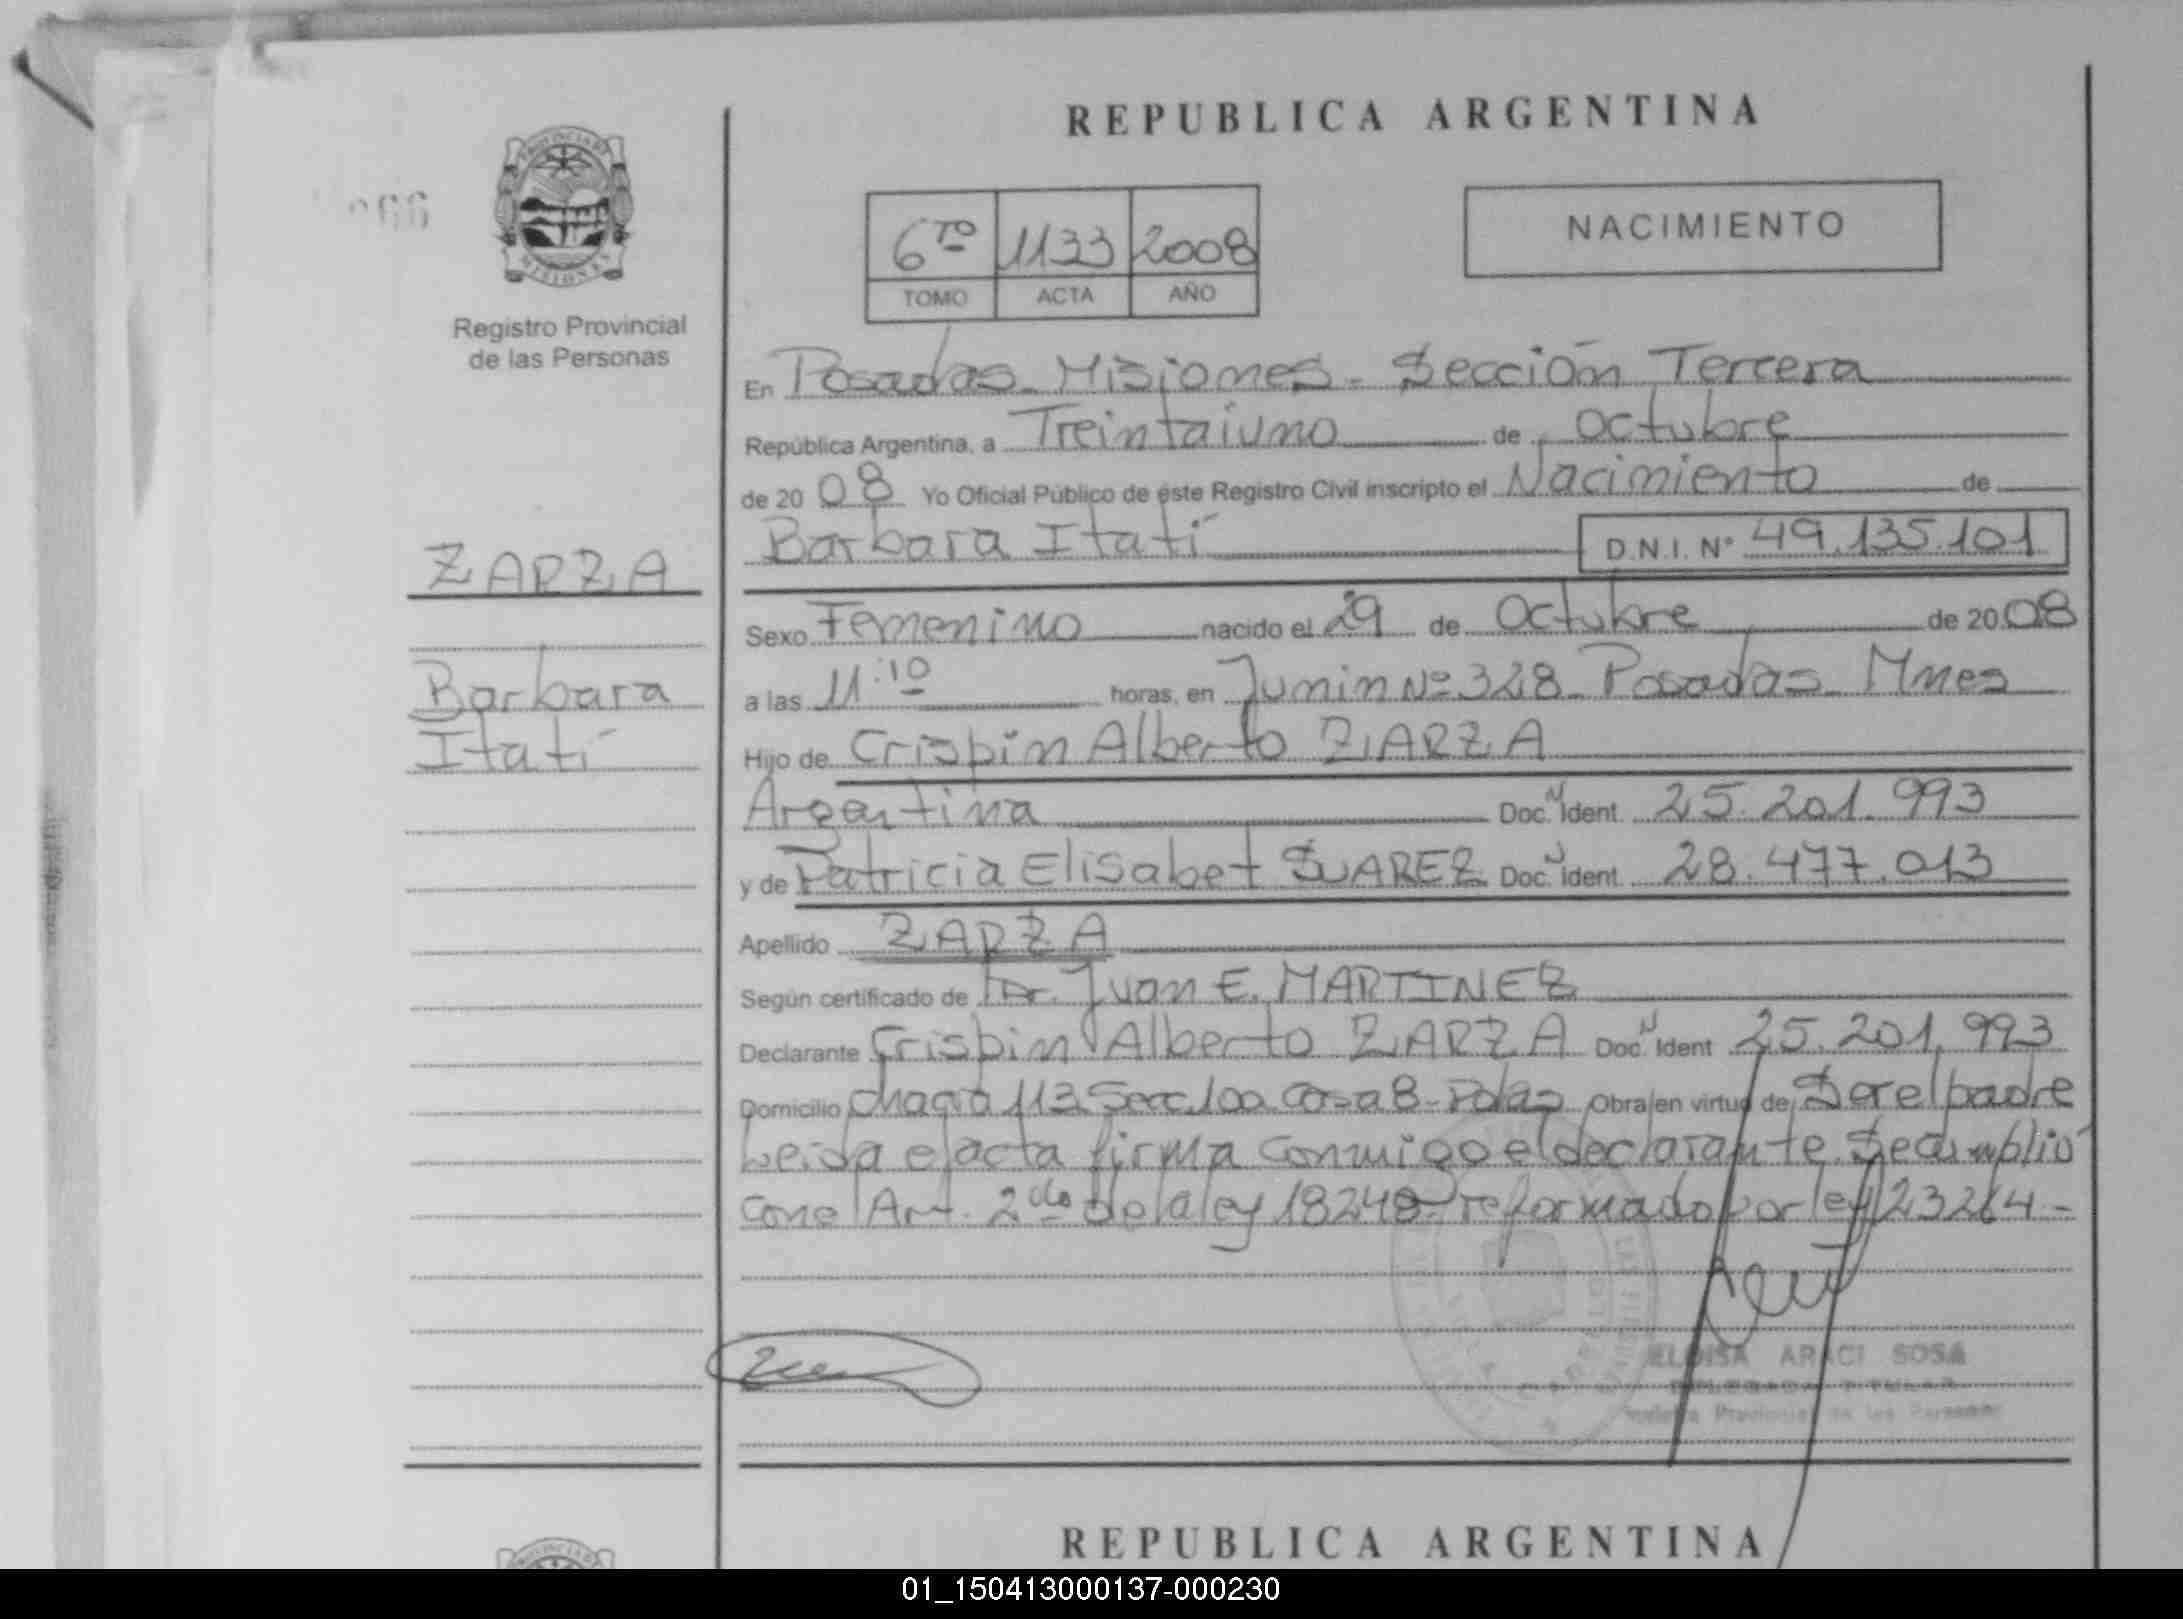 REPUBLICA ARGENTINA
66
PROVINCIA DE
MISIONES
Registro Provincial
de las Personas
6TO 1133 2008
TOMO ACTA AÑO
NACIMIENTO
En Posadas - Misiones - Sección Tercera
República Argentina, a Treintaiuno de Octubre
de 2008 Yo Oficial Público de éste Registro Civil inscripto el Nacimiento de
Barbara Itatí D.N.I. Nº 49.135.101
ZARZA
Barbara
Itatí
Sexo Femenino nacido el 29 de Octubre de 2008
a las 11:10 horas, en Junin Nº 328 Posadas Mnes
Hijo de Crispin Alberto ZARZA
Argentina Doc. N Ident. 25.201.993
y de Patricia Elisabet SUAREZ Doc. N Ident. 28.477.013
Apellido ZARZA
Según certificado de Dr. Juan E. MARTINEZ
Declarante Crispin Alberto ZARZA Doc. N Ident 25.201.993
Domicilio chacra 113 Secc. 100 Casa 8 - Pdas Obra en virtud de Ser el padre
Leida el acta firma conmigo el declarante. Se cumplió
con el Art. 2do de la ley 18248 - reformado por ley 23264 -
ELOISA ARACI SOSA
DELEGADA TITULAR
Provincial de las Personas
REPUBLICA ARGENTINA
01_150413000137-000230